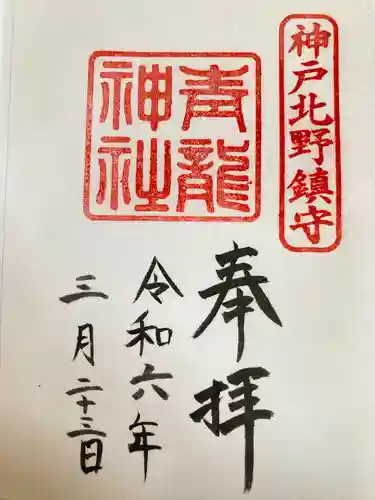 神戸北野鎮守
青龍神社
奉拝
令和六年
三月二十三日